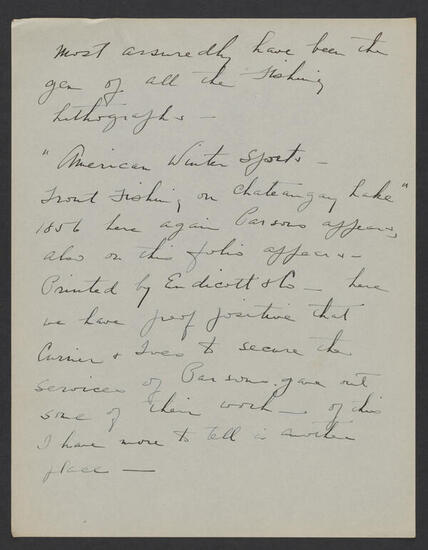 most assuredly have been the
gem of all the Fishing
lithographs —
"American Winter Sports —
Trout Fishing on Chateaugay Lake"
1856 here again Parsons appears,
also on this folio appears —
Printed by Endicott & Co — here
we have proof positive that
Currier & Ives to secure the
services of Parsons gave out
some of their work — of this
I have more to tell in another
place —